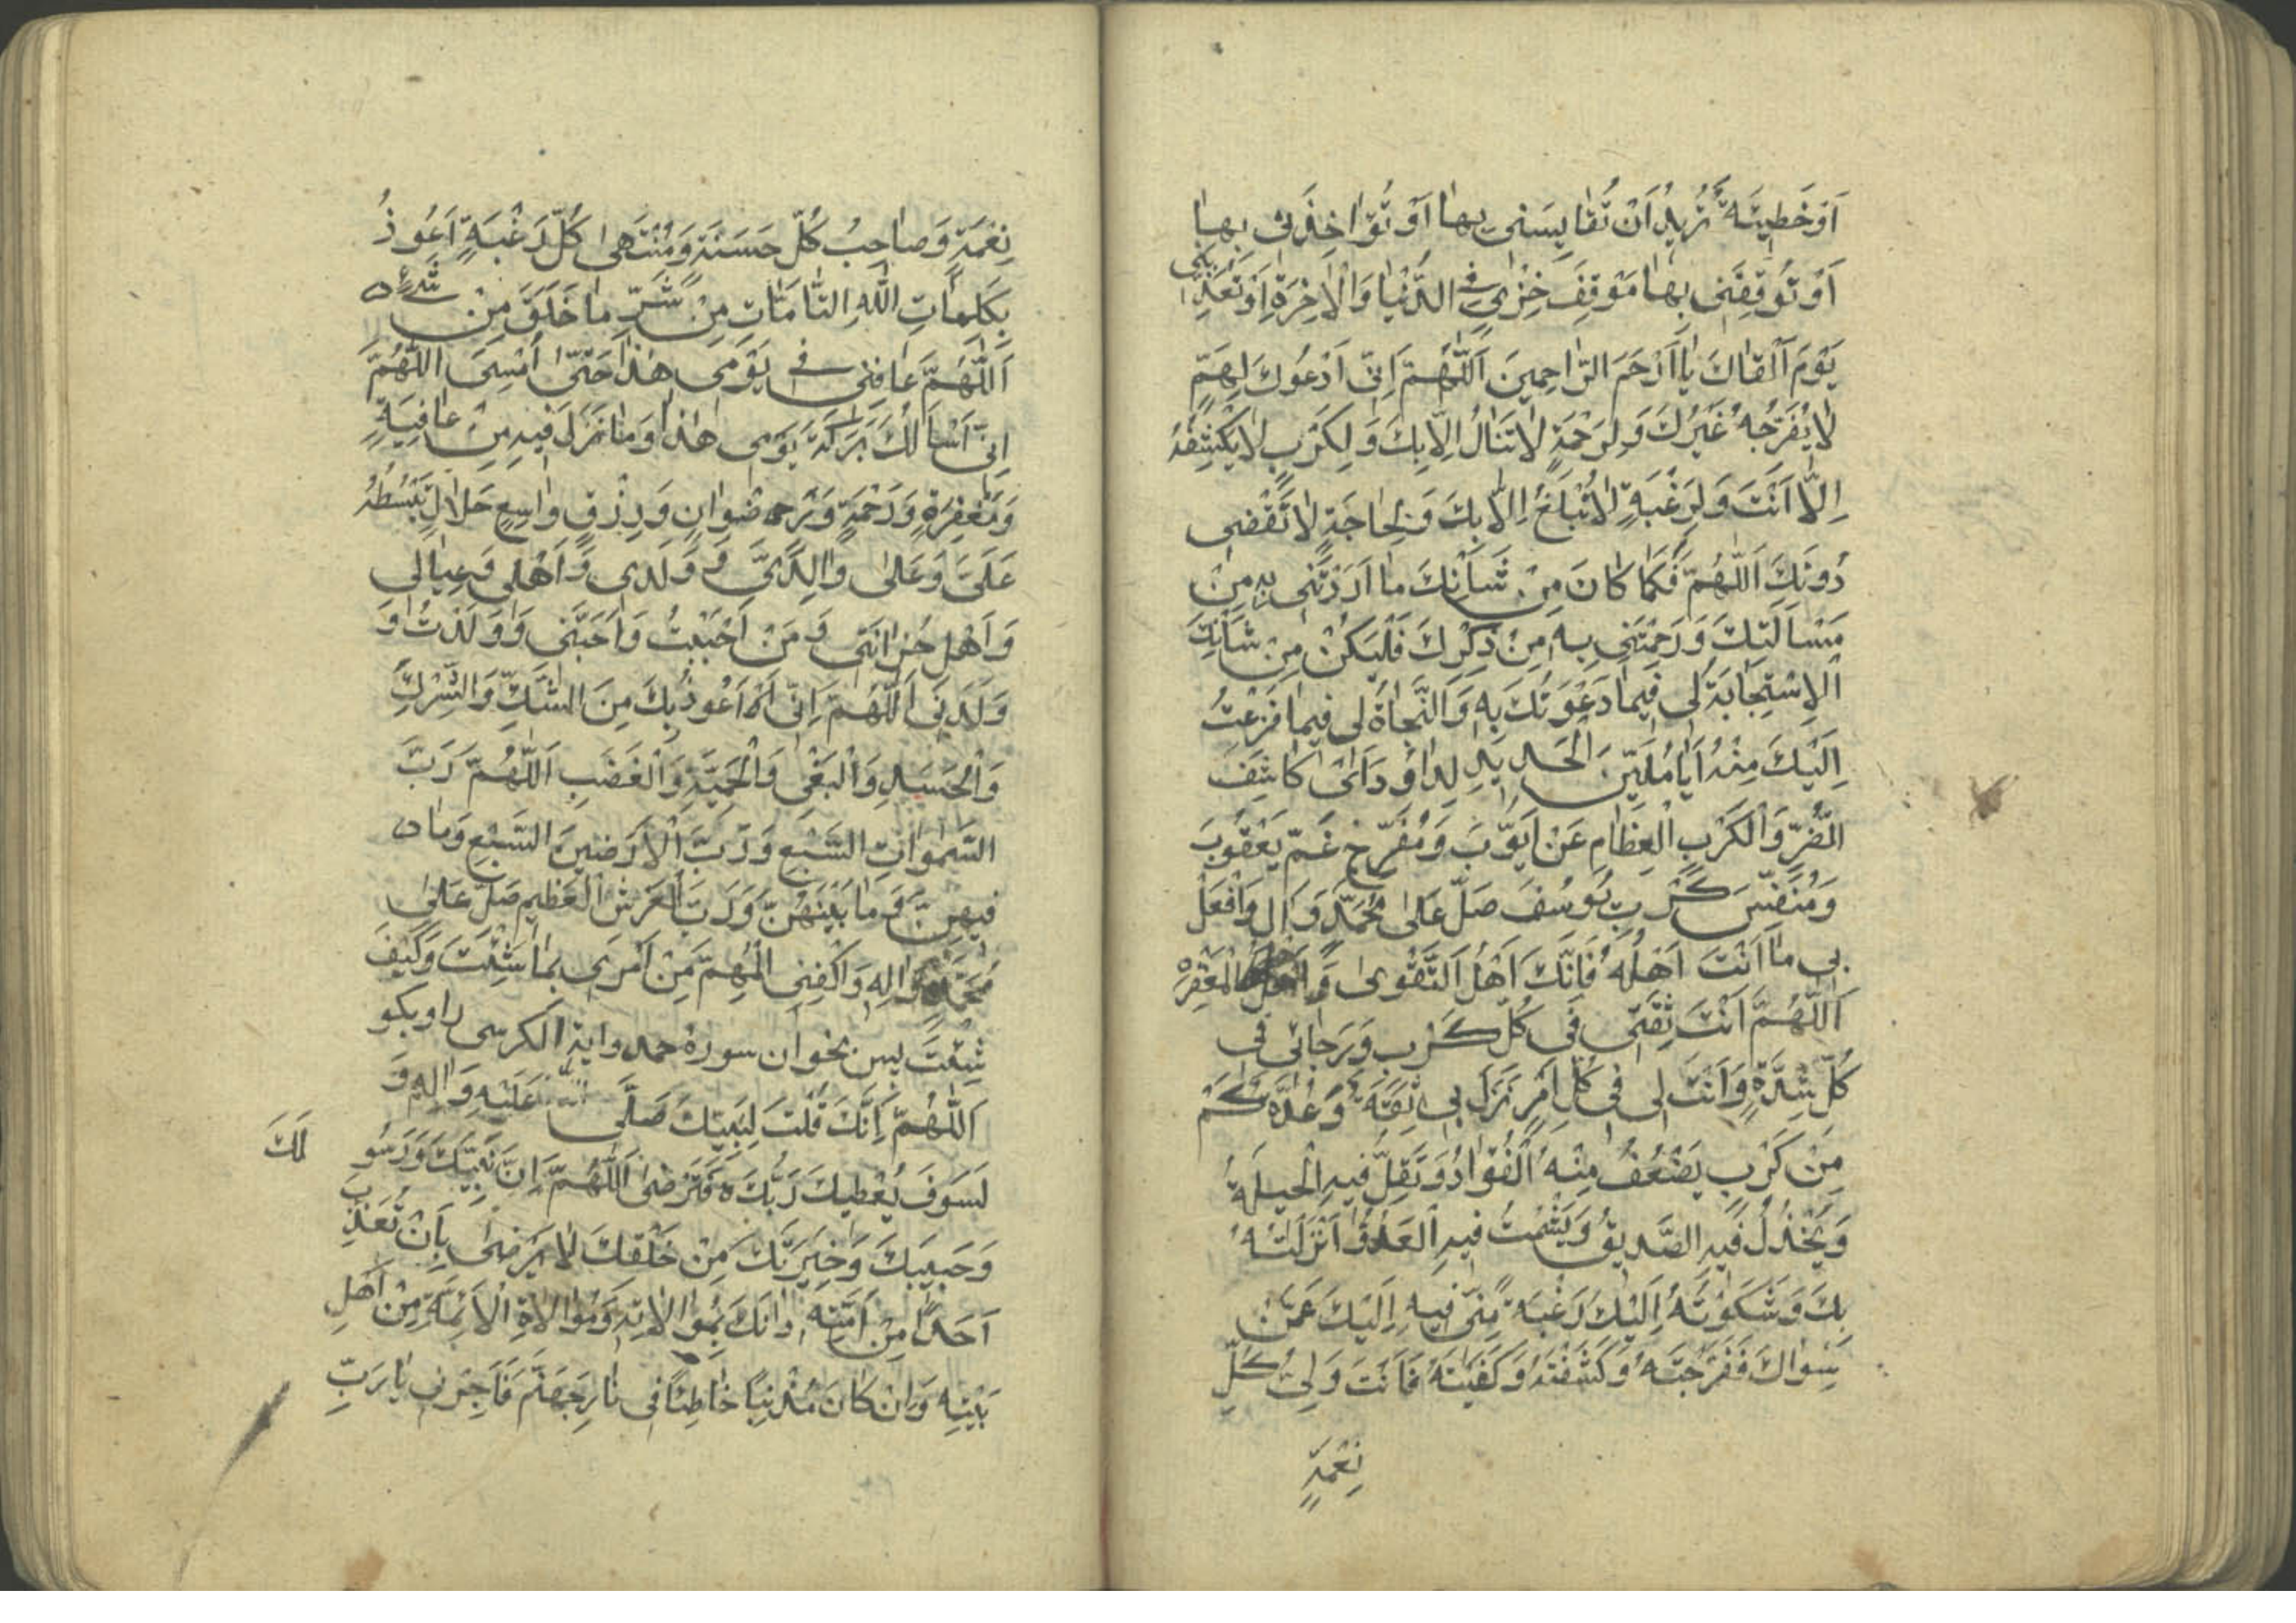 اَوْ خَطِيئَةً تُرِيدُ اَنْ تُقَايِسَنِي بِهَا اَوْ تُؤَاخِذَنِي بِهَا
اَوْ تُوقِفَنِي بِهَا مَوْقِفَ خِزْيٍ فِي الدُّنْيَا وَالْاٰخِرَةِ اَوْ تُعَذِّبَنِي
يَوْمَ اَلْقَاكَ يَا اَرْحَمَ الرَّاحِمِينَ اَللّٰهُمَّ اِنِّي اَدْعُوكَ لِهَمٍّ
لَا يُفَرِّجُهُ غَيْرُكَ وَلِرَحْمَةٍ لَا تَنَالُ اِلَّا بِكَ وَلِكَرْبٍ لَا يَكْشِفُهُ
اِلَّا اَنْتَ وَلِرَغْبَةٍ لَا تُبْلَغُ اِلَّا بِكَ وَلِحَاجَةٍ لَا تُقْضٰى
دُونَكَ اَللّٰهُمَّ فَكَمَا كَانَ مِنْ شَأْنِكَ مَا اَرَدْتَنِي بِهِ مِنْ
مَسْاَلَتِكَ وَرَحِمْتَنِي بِهِ مِنْ ذِكْرِكَ فَلْيَكُنْ مِنْ شَأْنِكَ
الْاِسْتِجَابَةُ لِي فِيمَا دَعَوْتُكَ بِهِ وَالنَّجَاةُ لِي فِيمَا فَزِعْتُ
اِلَيْكَ مِنْهُ اَيَا مُلَيِّنَ الْحَدِيدِ لِدَاوُدَ اَىْ كَاشِفَ
الضُّرِّ وَالْكَرْبِ الْعِظَامِ عَنْ اَيُّوبَ وَمُفَرِّجَ غَمِّ يَعْقُوبَ
وَمُنَفِّسَ كَرْبِ يُوسُفَ صَلِّ عَلٰى مُحَمَّدٍ وَاٰلِ وَافْعَلْ
بِي مَا اَنْتَ اَهْلُهُ فَاِنَّكَ اَهْلُ التَّقْوٰى وَاَهْلُ الْمَغْفِرَةِ
اَللّٰهُمَّ اَنْتَ ثِقَتِي فِي كُلِّ كَرْبٍ وَرَجَائِي فِي
كُلِّ شِدَّةٍ وَاَنْتَ لِي فِي كُلِّ اَمْرٍ نَزَلَ بِي ثِقَةٌ وَعُدَّةٌ كَمْ
مِنْ كَرْبٍ يَضْعُفُ مِنْهُ الْفُؤَادُ وَتَقِلُّ فِيهِ الْحِيلَةُ
وَيَخْذُلُ فِيهِ الصَّدِيقُ وَيَشْمَتُ فِيهِ الْعَدُوُّ اَنْزَلْتُهُ
بِكَ وَشَكَوْتُهُ اِلَيْكَ رَغْبَةً مِنِّي فِيهِ اِلَيْكَ عَمَّنْ
سِوَاكَ فَفَرَّجْتَهُ وَكَشَفْتَهُ وَكَفَيْتَهُ فَاَنْتَ وَلِيُّ كُلِّ
نِعْمَةٍ
نِعْمَةٍ وَصَاحِبُ كُلِّ حَسَنَةٍ وَمُنْتَهٰى كُلِّ رَغْبَةٍ اَعُوذُ
بِكَلِمَاتِ اللّٰهِ التَّامَّاتِ مِنْ شَرِّ مَا خَلَقَ مِنْ شَيْءٍ
اَللّٰهُمَّ عَافِنِي فِي يَوْمِي هٰذَا حَتّٰى اُمْسِىَ اللّٰهُمَّ
اِنِّي اَسْاَلُكَ بَرَكَةَ يَوْمِي هٰذَا وَمَا نَزَلَ فِيهِ مِنْ عَافِيَةٍ
وَمَغْفِرَةٍ وَرَحْمَةٍ وَرِضْوَانٍ وَرِزْقٍ وَاسِعٍ حَلَالٍ تَبْسُطُهُ
عَلَيَّ وَعَلٰى وَالِدَيَّ وَوَلَدِي وَاَهْلِي وَعِيَالِي
وَاَهْلِ حُزَانَتِي وَمَنْ اَحْبَبْتُ وَاَحَبَّنِي وَوَلَدْتُ وَ
وَلَدَنِي اَللّٰهُمَّ اِنِّي اَعُوذُ بِكَ مِنَ الشَّكِّ وَالشِّرْكِ
وَالْحَسَدِ وَالْبَغْيِ وَالْحَمِيَّةِ وَالْغَضَبِ اَللّٰهُمَّ رَبَّ
السَّمٰوَاتِ السَّبْعِ وَرَبَّ الْاَرَضِينَ السَّبْعِ وَمَا
فِيهِنَّ وَمَا بَيْنَهُنَّ وَرَبَّ الْعَرْشِ الْعَظِيمِ صَلِّ عَلٰى
مُحَمَّدٍ وَاٰلِهِ وَاكْفِنِي الْمُهِمَّ مِنْ اَمْرِي بِمَا شِئْتَ وَكَيْفَ
شِئْتَ پس بخوان سوره حمد واية الكرسى را وبكو
اَللّٰهُمَّ اِنَّكَ قُلْتَ لِنَبِيِّكَ صَلَّى اللّٰهُ عَلَيْهِ وَاٰلِهِ وَ
لَسَوْفَ يُعْطِيكَ رَبُّكَ فَتَرْضٰى اَللّٰهُمَّ اِنَّ نَبِيَّكَ وَرَسُو
لَكَ
وَحَبِيبَكَ وَخِيَرَتَكَ مِنْ خَلْقِكَ لَا يَرْضٰى بِاَنْ تُعَذِّبَ
اَحَدًا مِنْ اُمَّتِهِ دَانَكَ بِمُوَالَاتِهِ وَمُوَالَاةِ الْاَئِمَّةِ مِنْ اَهْلِ
بَيْتِهِ وَاِنْ كَانَ مُذْنِبًا خَاطِئًا فِي نَارِ جَهَنَّمَ فَاَجِرْنِي يَا رَبِّ